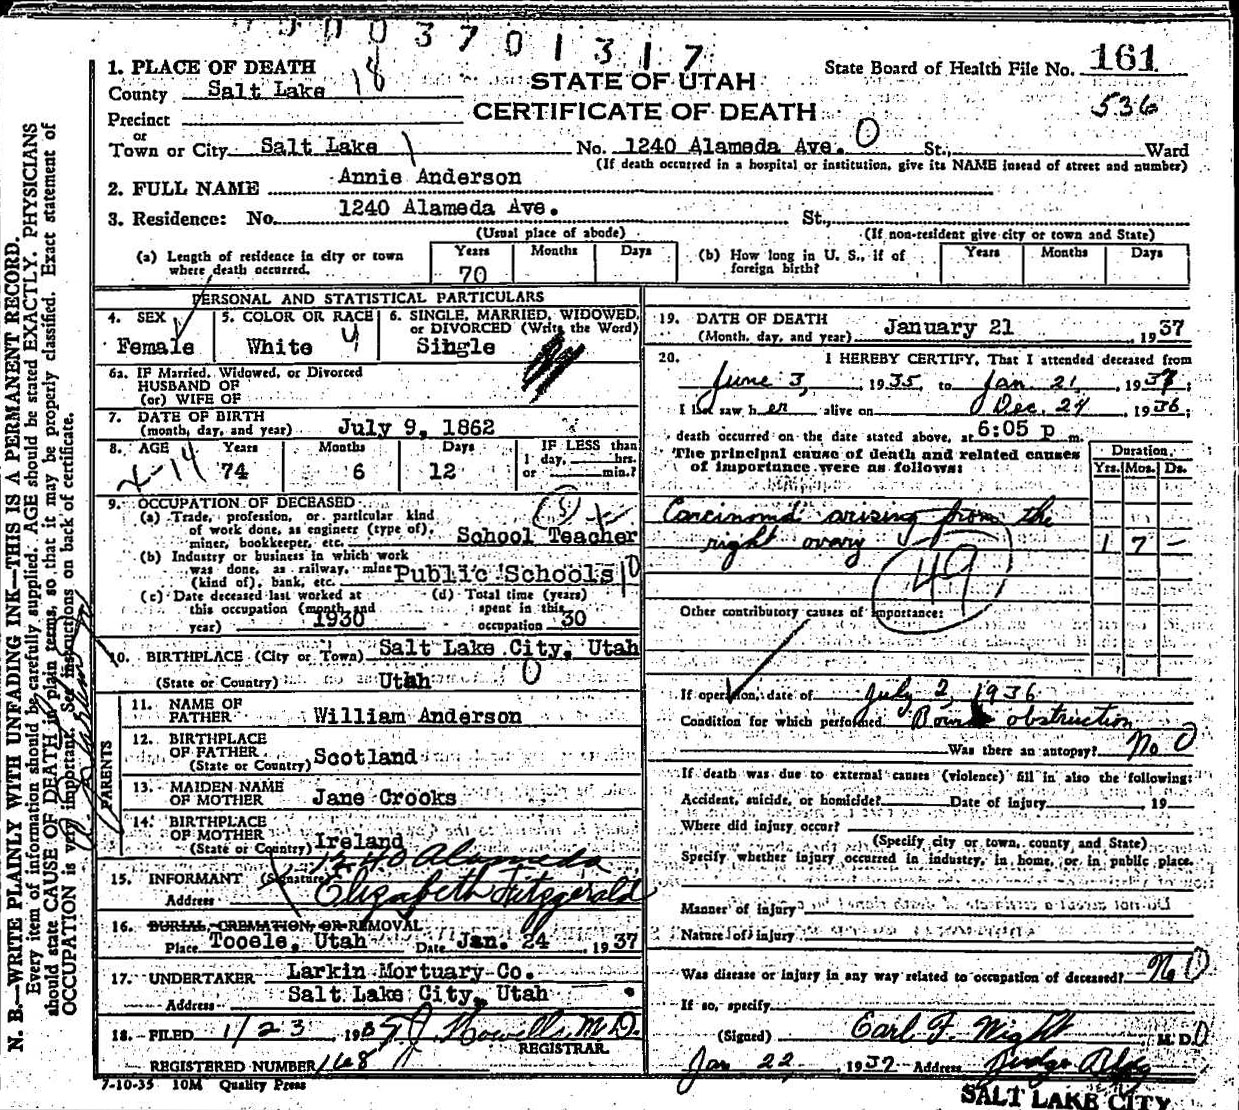 0003701317
1. PLACE OF DEATH
County Salt Lake 18
STATE OF UTAH
CERTIFICATE OF DEATH
State Board of Health File No. 161
536
Precinct
or
Town or City Salt Lake 1 No. 1240 Alameda Ave. 0 St., Ward
(If death occurred in a hospital or institution, give its NAME instead of street and number)
2. FULL NAME Annie Anderson
3. Residence: No. 1240 Alameda Ave. St.,
(Usual place of abode) (If non-resident give city or town and State)
(a) Length of residence in city or town where death occurred. Years 70 Months Days
(b) How long in U. S., if of foreign birth? Years Months Days
PERSONAL AND STATISTICAL PARTICULARS
4. SEX Female
5. COLOR OR RACE White 4
6. SINGLE, MARRIED, WIDOWED, or DIVORCED (Write the Word) Single
6a. IF Married, Widowed, or Divorced
HUSBAND OF
(or) WIFE OF
7. DATE OF BIRTH
(month, day, and year) July 9, 1862
8. AGE Years 74 Months 6 Days 12 IF LESS than 1 day, hrs. or min.?
9. OCCUPATION OF DECEASED
(a) Trade, profession, or particular kind
of work done, as engineer (type of),
miner, bookkeeper, etc. School Teacher
(b) Industry or business in which work
was done, as railway, mine
(kind of), bank, etc. Public Schools 10
(c) Date deceased last worked at
this occupation (month and
year) 1930
(d) Total time (years)
spent in this
occupation 30
10. BIRTHPLACE (City or Town) Salt Lake City, Utah
(State or Country) Utah 0
PARENTS
11. NAME OF
FATHER William Anderson
12. BIRTHPLACE
OF FATHER
(State or Country) Scotland
13. MAIDEN NAME
OF MOTHER Jane Crooks
14. BIRTHPLACE
OF MOTHER
(State or Country) Ireland
1240 Alameda
15. INFORMANT (Signature) Elizabeth Fitzgerald
Address
16. BURIAL, CREMATION, OR REMOVAL
Place Tooele, Utah Date Jan. 24 1937
17. UNDERTAKER Larkin Mortuary Co.
Address Salt Lake City, Utah
18. FILED 1/23 1937 J. Howells M.D.
REGISTRAR
REGISTERED NUMBER 168
7-10-35 10M Quality Press
19. DATE OF DEATH
(Month, day, and year) January 21 1937
20. I HEREBY CERTIFY, That I attended deceased from
June 3, 1935, to Jan. 21, 1937;
I last saw her alive on Dec. 24 1936;
death occurred on the date stated above, at 6:05 p m.
The principal cause of death and related causes
of importance were as follows:
Duration
Yrs. Mos. Ds.
Carcinoma arising from the
right ovary 1 7 -
49
Other contributory causes of importance:
If operation, date of July 2, 1936
Condition for which performed obstruction
Was there an autopsy? No 0
If death was due to external causes (violence) fill in also the following:
Accident, suicide, or homicide? Date of injury 19
Where did injury occur?
(Specify city or town, county and State)
Specify whether injury occurred in industry, in home, or in public place.
Manner of injury
Nature of injury
Was disease or injury in any way related to occupation of deceased? No 0
If so, specify
(Signed) Earl F. Wight M. D. 0
Jan 22, 1937 Address Judge Bldg
SALT LAKE CITY
N. B.—WRITE PLAINLY WITH UNFADING INK—THIS IS A PERMANENT RECORD.
Every item of information should be carefully supplied. AGE should be stated EXACTLY. PHYSICIANS
should state CAUSE OF DEATH in plain terms, so that it may be properly classified. Exact statement of
OCCUPATION is very important. See instructions on back of certificate.